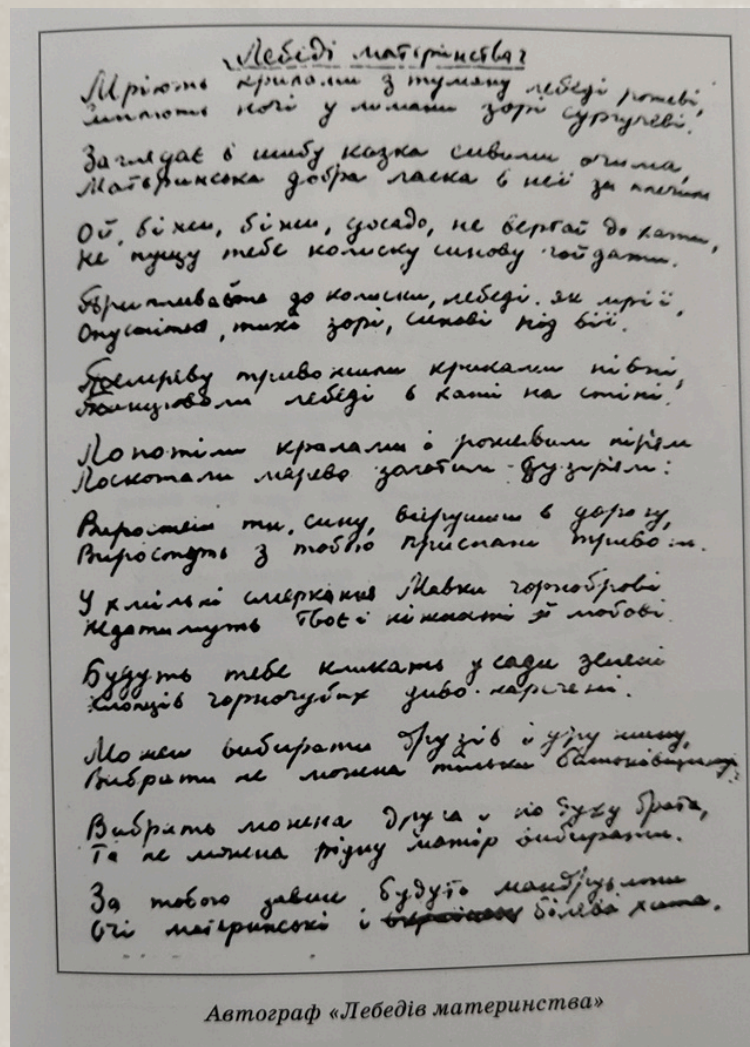 Лебеді материнства
Мріють крилами з туману лебеді рожеві,
Сиплють ночі у лимани зорі сургучеві.
Заглядає в шибу казка сивими очима,
Материнська добра ласка в неї за плечима
Ой, біжи, біжи, досадо, не вертай до хати,
Не пущу тебе колиску синову гойдати.
Припливайте до колиски, лебеді, як мрії,
Опустіться, тихі зорі, синові під вії.
Темряву тривожили криками півні,
Танцювали лебеді в хаті на стіні.
Лопотіли крилами і рожевим пір'ям
Лоскотали марево золотим сузір'ям:
Виростеш ти, сину, вирушиш в дорогу,
Виростуть з тобою приспані тривоги.
У хмільні смеркання Мавки чорноброві
Ждатимуть твоєї ніжності й любові.
Будуть тебе кликать у сади зелені
Хлопців чорночубих диво-наречені.
Можеш вибирати друзів і дружину,
Вибрати не можна тільки батьківщину.
Вибрать можна друга і по духу брата,
Та не можна рідну матір вибирати.
За тобою завше будуть мандрувати
Очі материнські і білява хата.
Автограф «Лебедів материнства»